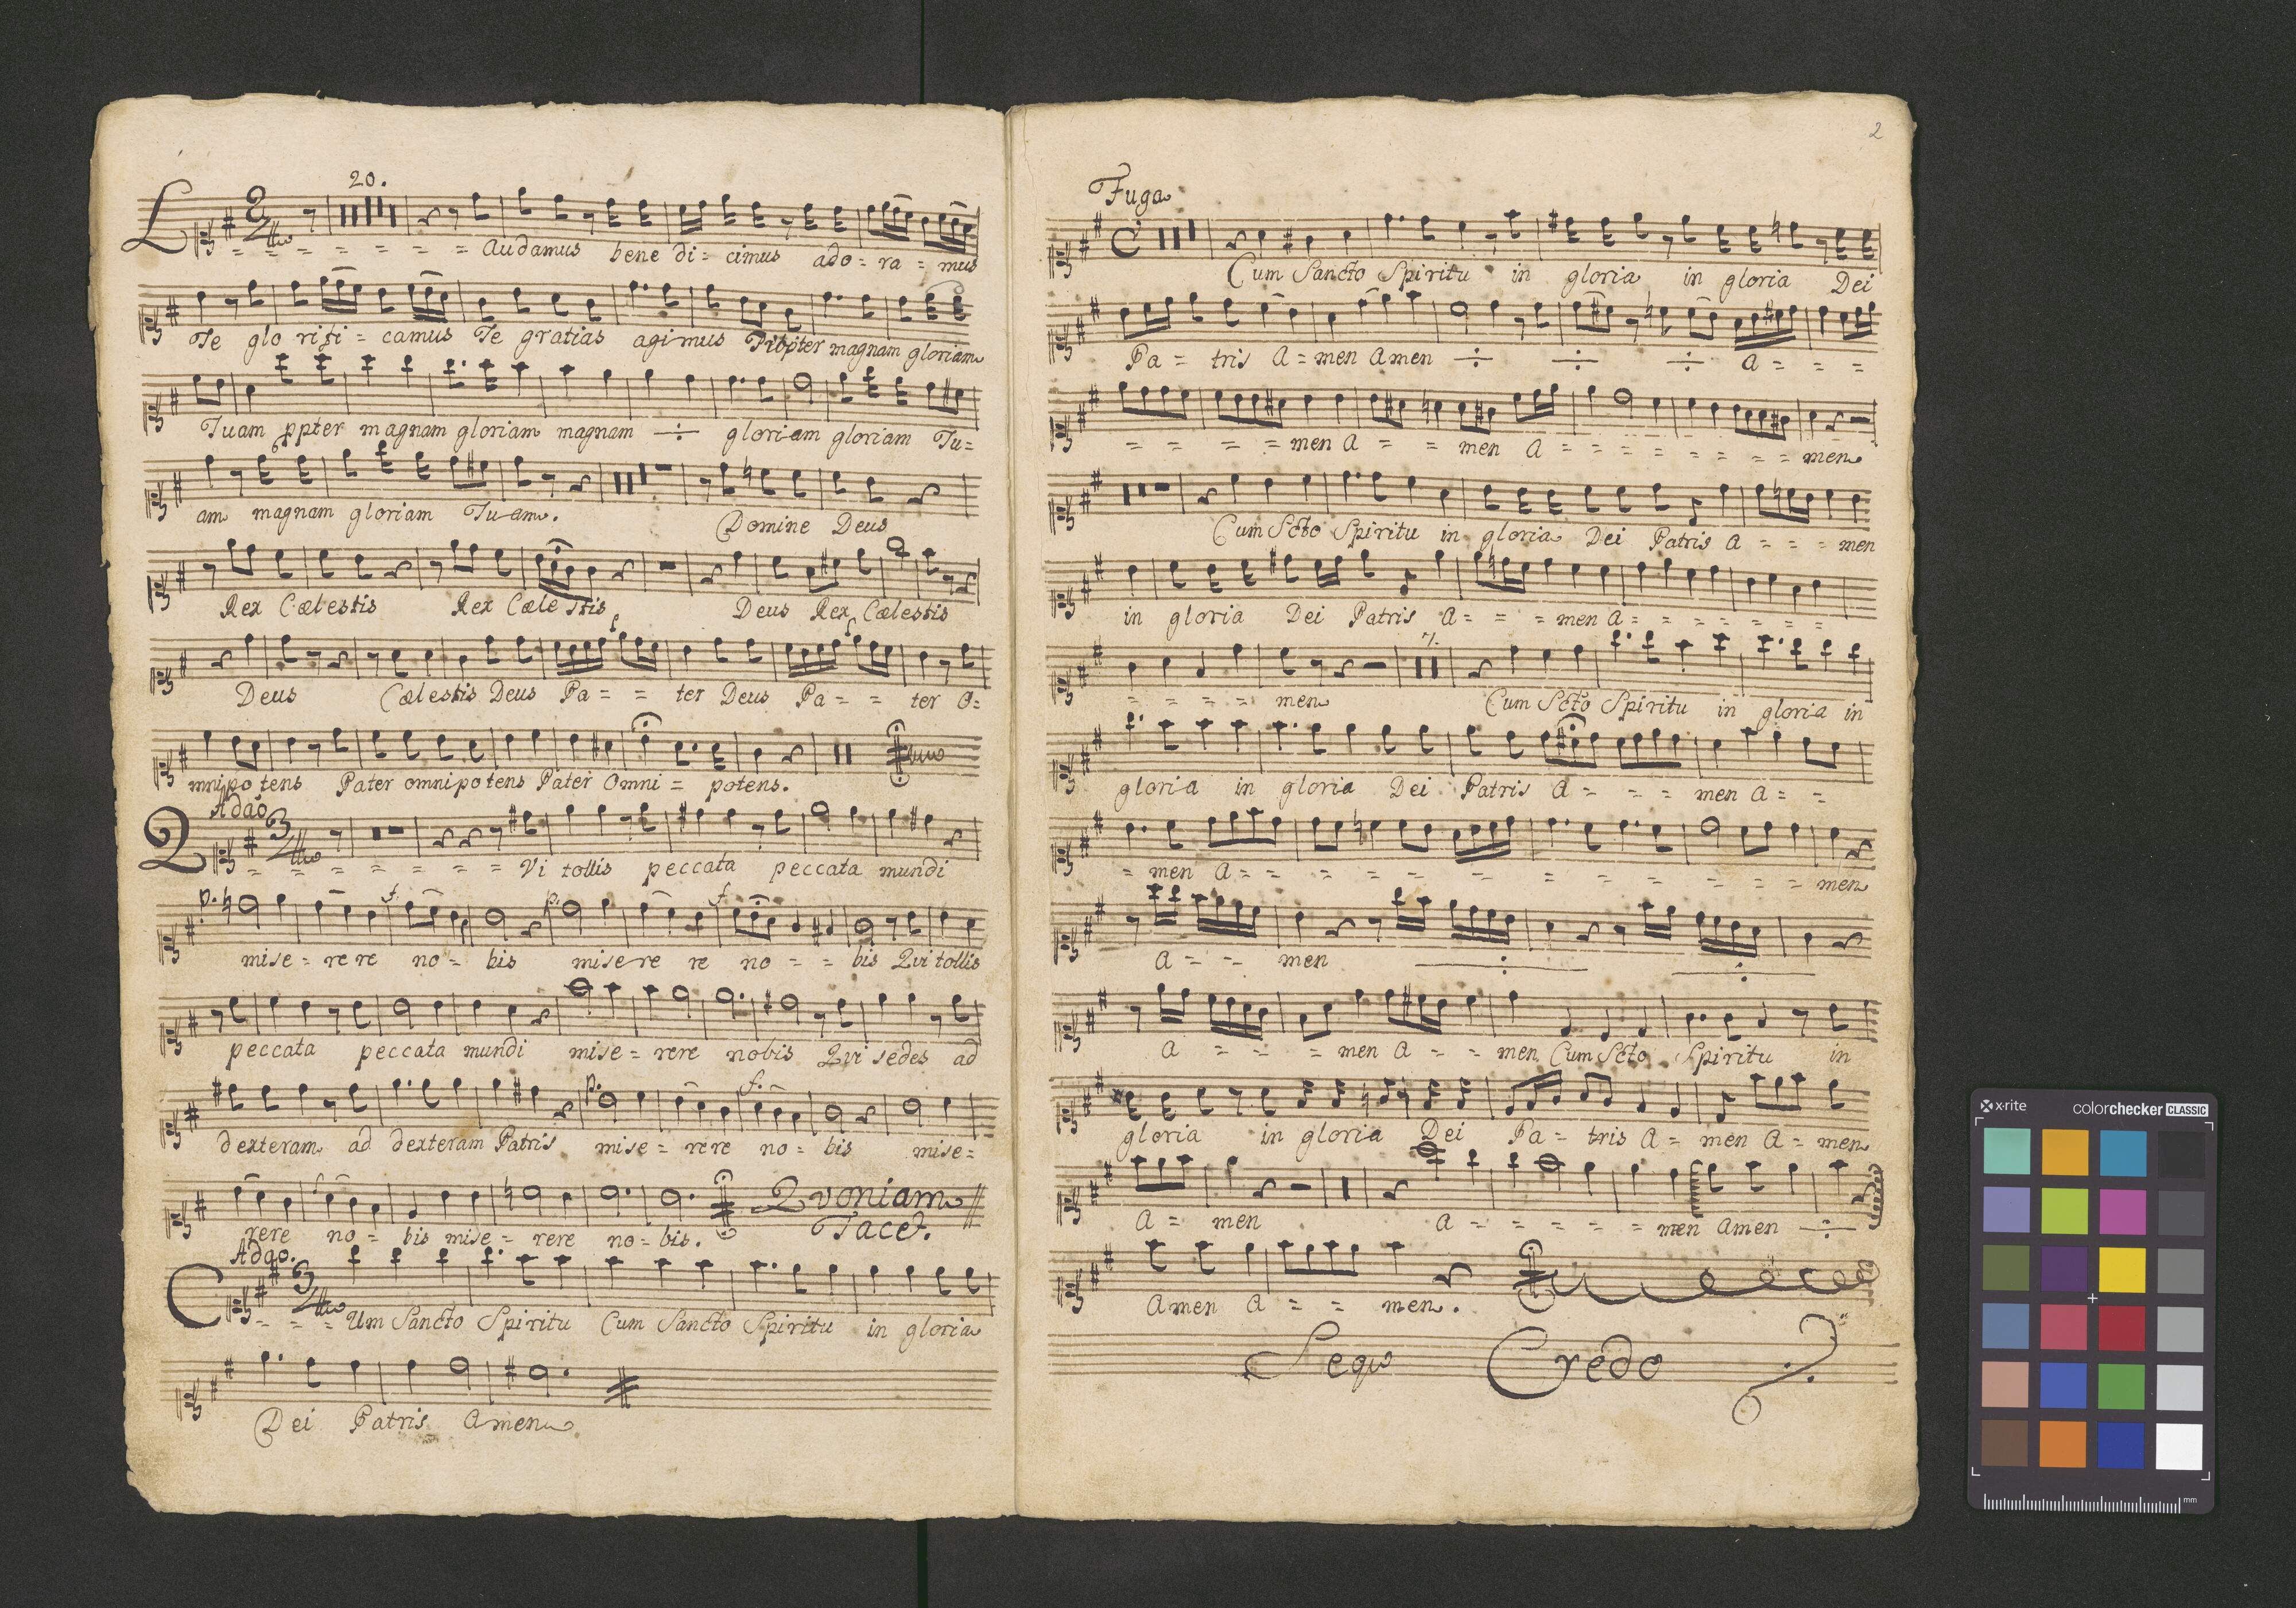 20.
L = = = = = = audamus bene di = cimus ado = ra = mus
Te glo rifi = camus Te gratias agimus Propter magnam gloriam
Tuam ppter magnam gloriam magnam ÷ gloriam gloriam Tu =
am magnam gloriam Tuam. Domine Deus
Rex Cælestis Rex Cæle stis Deus Rex Cælestis
Deus Cælestis Deus Pa = = ter Deus Pa = = ter O =
mnipotens Pater omnipotens Pater Omni = potens.
Adao
Q 3 = = = = = = Vi tollis peccata peccata mundi
p. f p. f
mise = re re no = bis misere re no = = bis Qvi tollis
peccata peccata mundi mise = rere nobis Qvi sedes ad
p. f.
dexteram ad dexteram Patris mise = rere no = bis mise =
Qvoniam
rere no = bis mise = rere no = bis. Tacet.
Adao.
C 3 = = = Um Sancto Spiritu Cum Sancto Spiritu in gloria
Dei Patris Amen
2
Fuga
Cum Sancto Spiritu in gloria in gloria Dei
Pa = tris A = men Amen ÷ ÷ ÷ A = = =
= = = = men A = = men A = = = = = = = = men
Cum Scto Spiritu in gloria Dei Patris A = = = men
in gloria Dei Patris A = = = men A = = = = = = =
7.
= = = = men Cum Scto Spiritu in gloria in
gloria in gloria Dei Patris A = = = men A = =
= men A = = = = = = = = = = = = men
A = = = men ÷ ÷
A = = = = men A = = = men Cum Scto Spiritu in
gloria in gloria Dei Pa = tris A = men A = men
A = men A = = = = = men Amen ÷
Amen A = = men.
Seqr Credo
x-rite colorchecker CLASSIC
mm